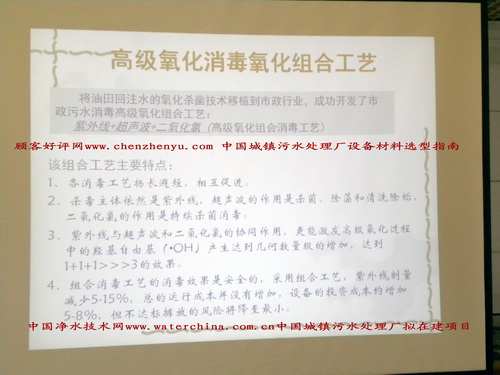 高级氧化消毒氧化组合工艺
将油田回注水的氧化杀菌技术移植到市政行业，成功开发了市
政污水消毒高级氧化组合工艺：
紫外线+超声波+二氧化氯（高级氧化组合消毒工艺）
顾客好评网www.chenzhenyu.com 中国城镇污水处理厂设备材料选型指南
该组合工艺主要特点：
1、各消毒工艺扬长避短，相互促进。
2、杀毒主体依然是紫外线，超声波的作用是杀菌、除藻和清洗除垢，
二氧化氯的作用是持续杀菌消毒。
3、紫外线与超声波和二氧化氯的协同作用，更能激发高级氧化过程
中的羟基自由基（•OH）产生达到几何数量级的增加，达到
1+1+1>>>3的效果。
4、组合消毒工艺的消毒效果是安全的，采用组合工艺，紫外线剂量
减少5-15%，总的运行成本并没有增加，设备的投资成本约增加
5-8%，但不达标排放的风险将降至最小。
中国净水技术网www.waterchina.com.cn中国城镇污水处理厂拟在建项目